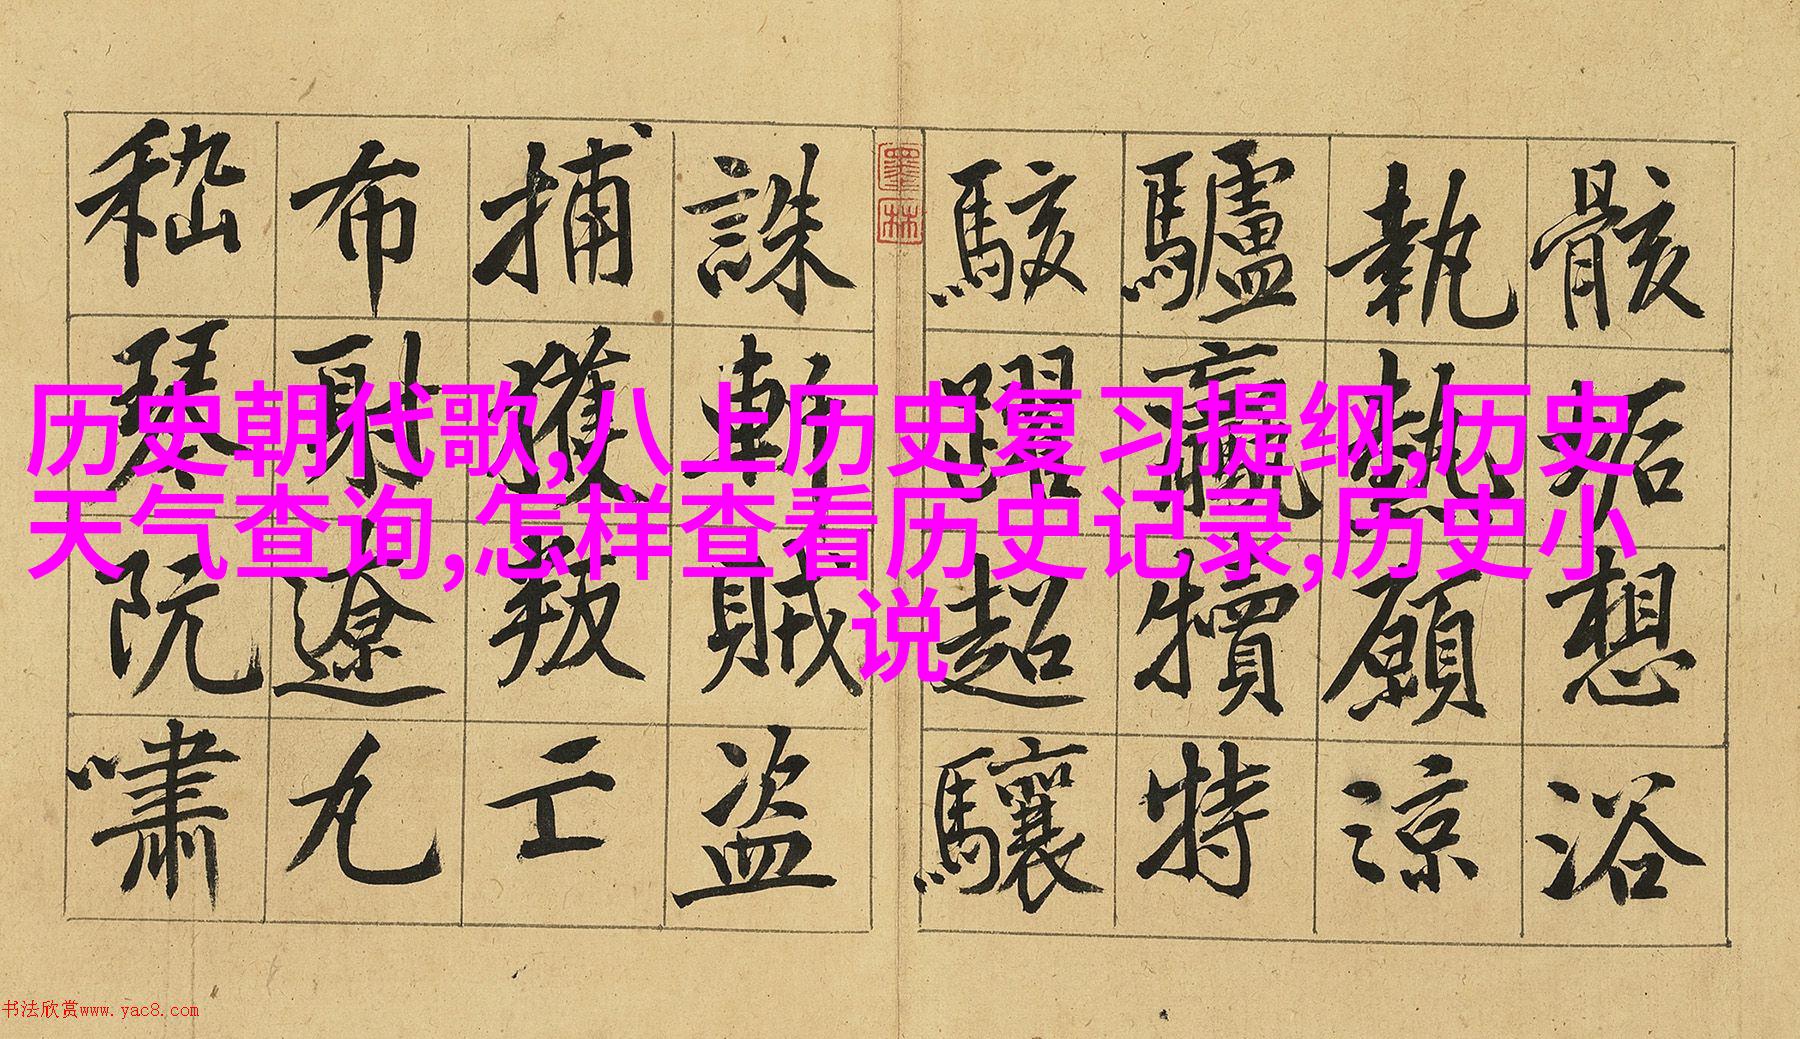 历史朝代歌,八上历史复习提纲,历史
天气查询,怎样查看历史记录,历史小
说
骸垢想浴
執熱願涼
驢驘犢特
駭躍超驤
誅斬賊盜
捕獲叛亡
布射遼丸
嵇琴阮嘯
墨林
书法欣赏www.yac8.com